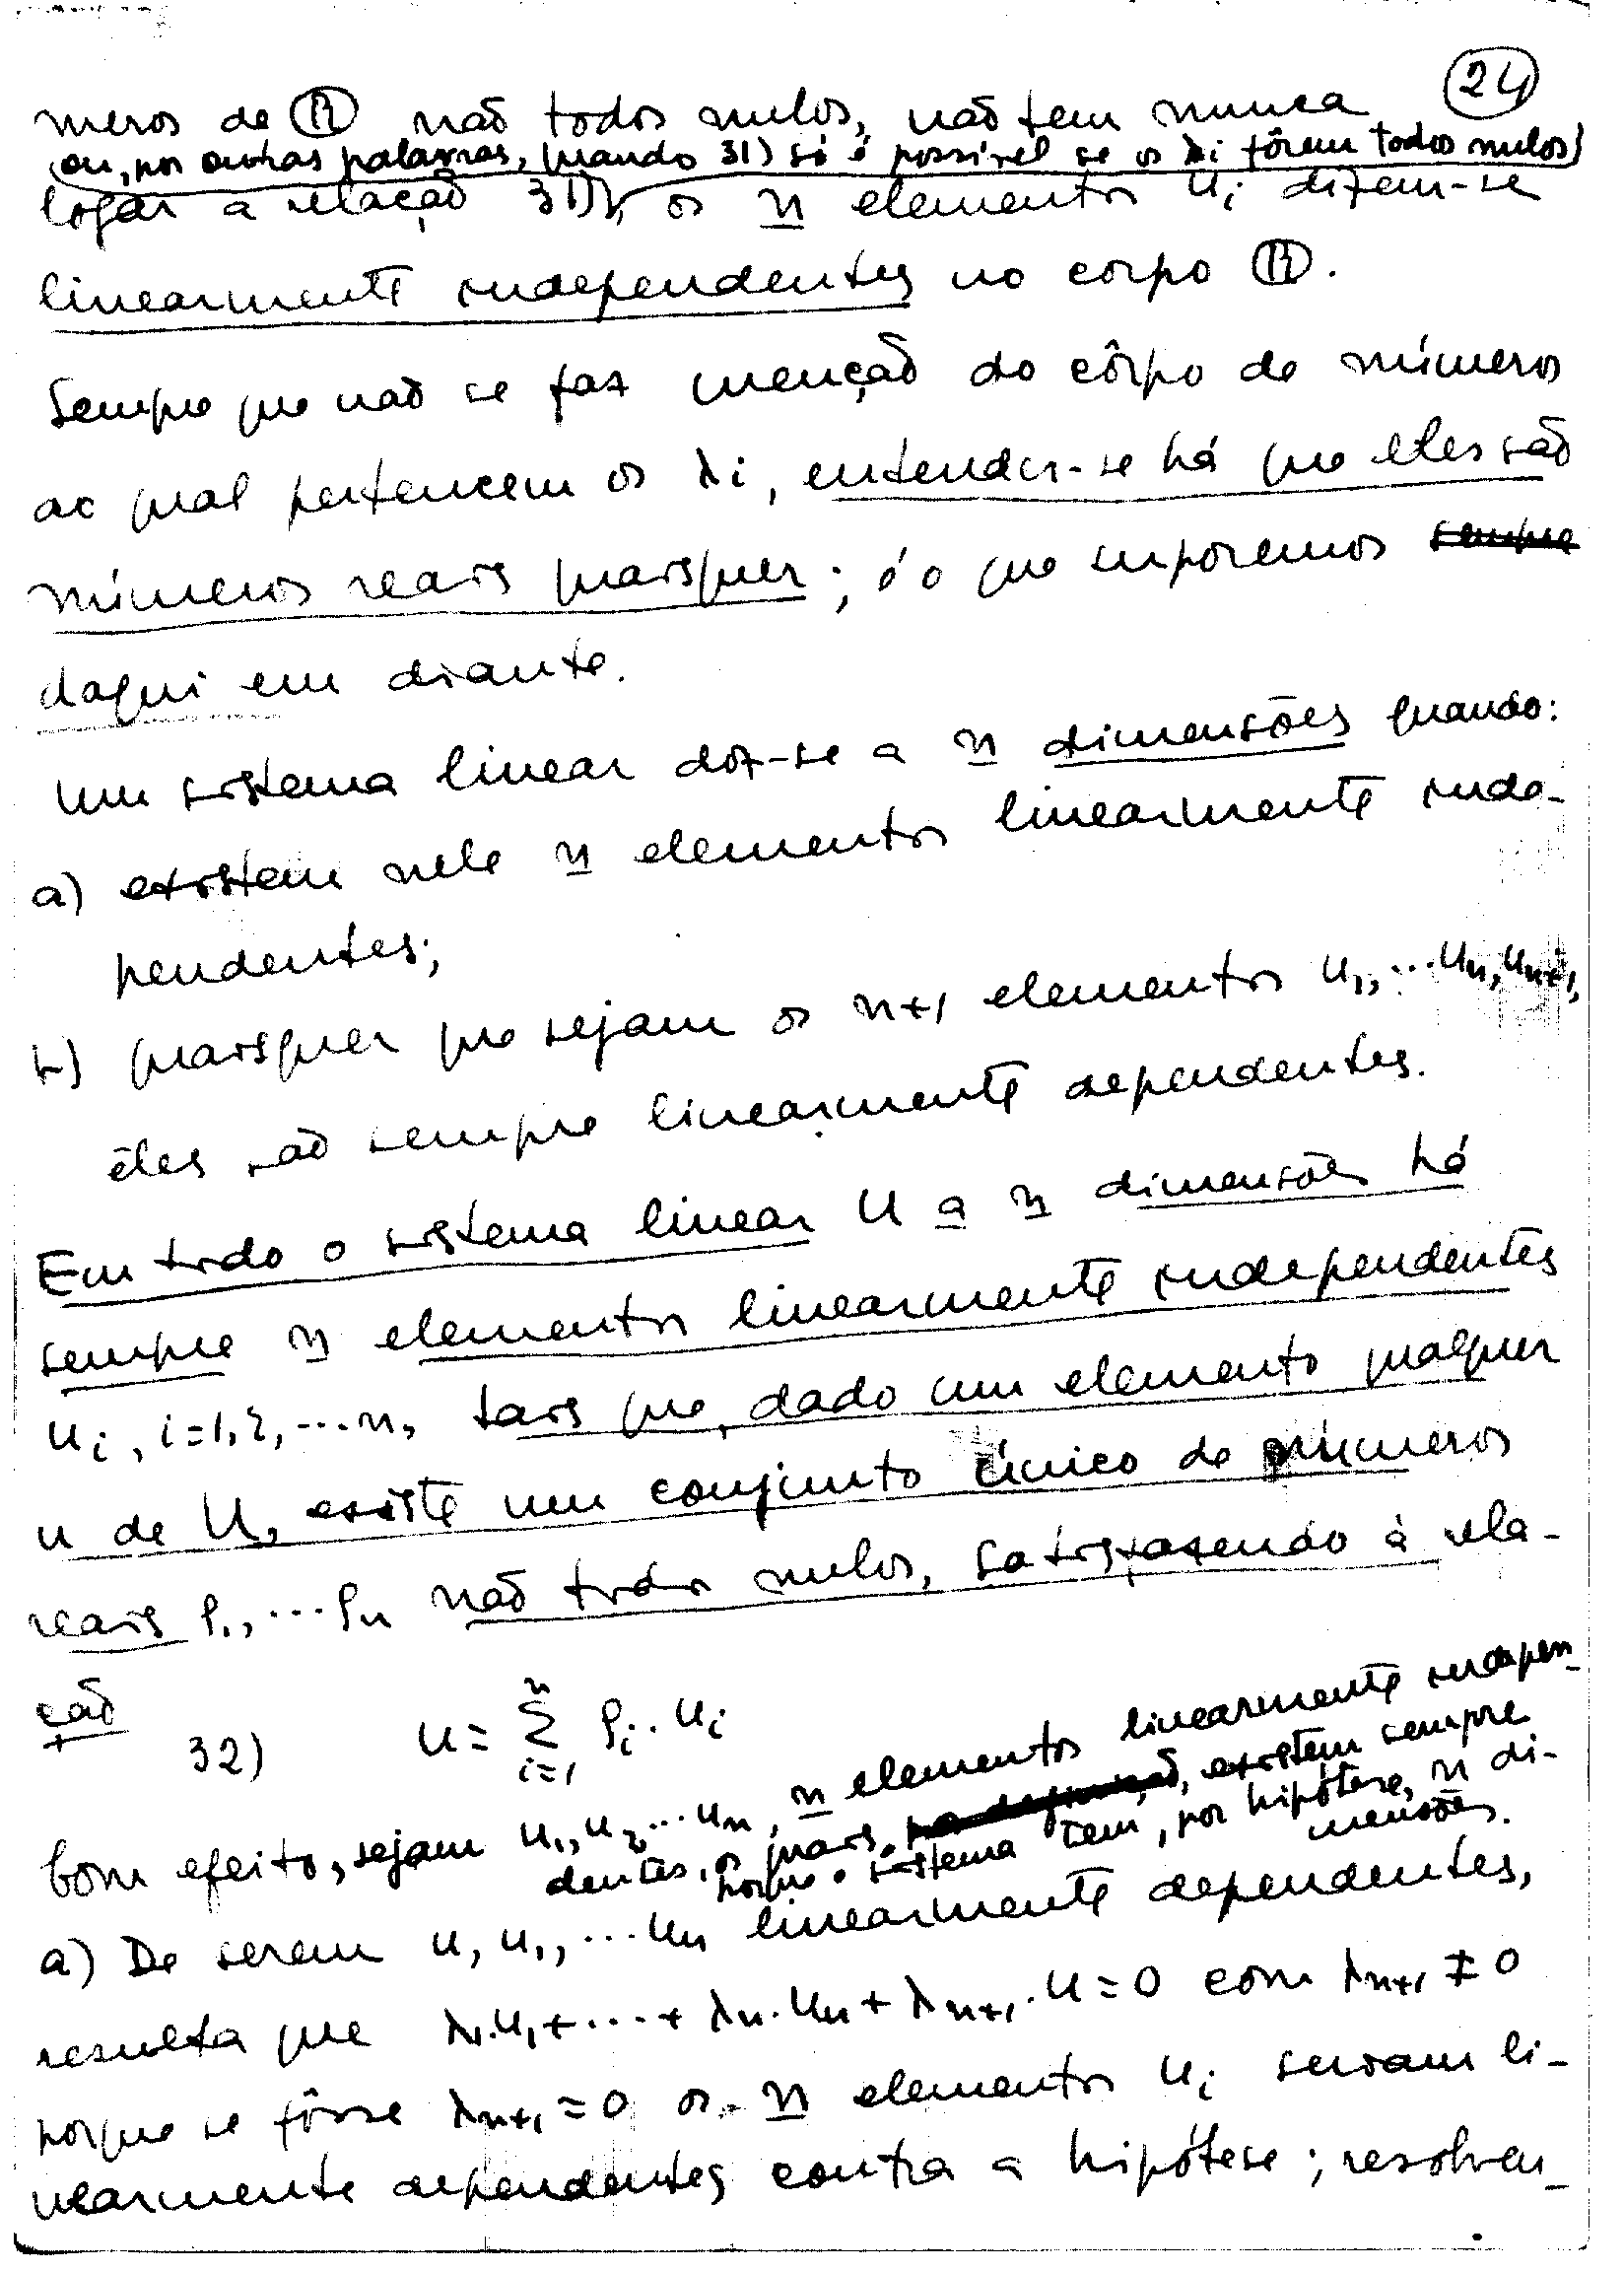 24
meros de R não todos nulos, não tem nunca
(ou, por outras palavras, quando 31) só é possível se os λi fôrem todos nulos)
logar a relação 31), os n elementos ui dizem-se
linearmente independentes no corpo R.
Sempre que não se faz menção do côrpo de números
ao qual pertencem os λi, entender-se há que eles são
números reais quaisquer; é o que suporemos sempre
daqui em diante.
Um sistema linear diz-se a n dimensões quando:
a) existem nele n elementos linearmente inde-
pendentes;
b) quaisquer que sejam os n+1 elementos u1, ... un, un+1,
êles são sempre linearmente dependentes.
Em todo o sistema linear U a n dimensões há
sempre n elementos linearmente independentes
ui, i=1,2,...n, tais que, dado um elemento qualquer
u de U, existe um conjunto único de números
reais ρ1, ... ρn não todos nulos, satisfazendo à rela-
ção
32) u = Σ_{i=1}^{n} ρi·ui
Com efeito, sejam u1, u2, ... un, n elementos linearmente indepen-
dentes, os quais, existem sempre
porque o sistema tem, por hipótese, n di-
mensões.
a) De serem u, u1, ... un linearmente dependentes,
resulta que λ1·u1+ ... + λn·un + λn+1·u = 0 com λn+1 ≠ 0
porque se fôsse λn+1 = 0 os n elementos ui seriam li-
nearmente dependentes contra a hipótese; resolven-